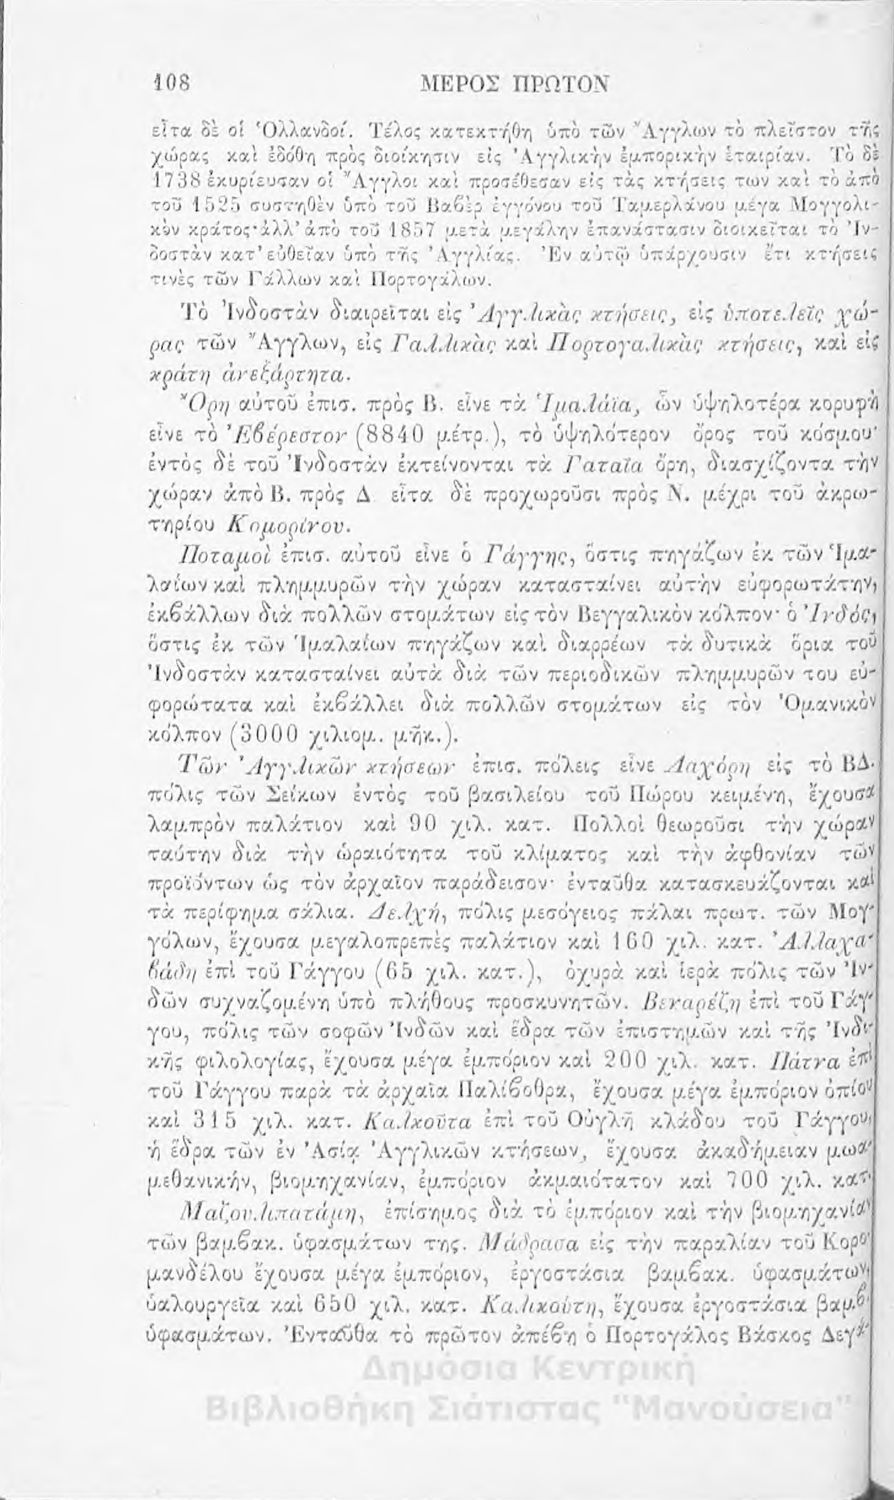 108 ΜΕΡΟΣ ΠΡΩΤΟΝ
εἶτα δὲ οἱ Ὁλλανδοί. Τέλος κατεκτήθη ὑπὸ τῶν Ἄγγλων τὸ πλεῖστον τῆς
χώρας καὶ ἐδόθη πρὸς διοίκησιν εἰς Ἀγγλικὴν ἐμπορικὴν ἑταιρίαν. Τὸ δὲ
1738 ἐκυρίευσαν οἱ Ἄγγλοι καὶ προσέθεσαν εἰς τὰς κτήσεις των καὶ τὸ ἀπὸ
τοῦ 1525 συστηθὲν ὑπὸ τοῦ Βαβὲρ ἐγγόνου τοῦ Ταμερλάνου μέγα Μογγολι-
κὸν κράτος· ἀλλ' ἀπὸ τοῦ 1857 μετὰ μεγάλην ἐπανάστασιν διοικεῖται τὸ Ἰν-
δοστὰν κατ' εὐθεῖαν ὑπὸ τῆς Ἀγγλίας. Ἐν αὐτῷ ὑπάρχουσιν ἔτι κτήσεις
τινὲς τῶν Γάλλων καὶ Πορτογάλων.
Τὸ Ἰνδοστὰν διαιρεῖται εἰς Ἀγγλικὰς κτήσεις, εἰς ὑποτελεῖς χώ-
ρας τῶν Ἄγγλων, εἰς Γαλλικὰς καὶ Πορτογαλικὰς κτήσεις, καὶ εἰς
κράτη ἀνεξάρτητα.
Ὄρη αὐτοῦ ἐπισ. πρὸς Β. εἶνε τὰ Ἱμαλάϊα, ὧν ὑψηλοτέρα κορυφὴ
εἶνε τὸ Ἐβέρεστον (8840 μέτρ.), τὸ ὑψηλότερον ὄρος τοῦ κόσμου·
ἐντὸς δὲ τοῦ Ἰνδοστὰν ἐκτείνονται τὰ Γαταῖα ὄρη, διασχίζοντα τὴν
χώραν ἀπὸ Β. πρὸς Δ εἶτα δὲ προχωροῦσι πρὸς Ν. μέχρι τοῦ ἀκρω-
τηρίου Κομορίνου.
Ποταμοὶ ἐπισ. αὐτοῦ εἶνε ὁ Γάγγης, ὅστις πηγάζων ἐκ τῶν Ἱμα-
λαίων καὶ πλημμυρῶν τὴν χώραν κατασταίνει αὐτὴν εὐφορωτάτην,
ἐκβάλλων διὰ πολλῶν στομάτων εἰς τὸν Βεγγαλικὸν κόλπον· ὁ Ἰνδός,
ὅστις ἐκ τῶν Ἱμαλαίων πηγάζων καὶ διαρρέων τὰ δυτικὰ ὅρια τοῦ
Ἰνδοστὰν κατασταίνει αὐτὰ διὰ τῶν περιοδικῶν πλημμυρῶν του εὐ-
φορώτατα καὶ ἐκβάλλει διὰ πολλῶν στομάτων εἰς τὸν Ὀμανικὸν
κόλπον (3000 χιλιομ. μῆκ.).
Τῶν Ἀγγλικῶν κτήσεων ἐπισ. πόλεις εἶνε Λαχόρη εἰς τὸ ΒΔ.
πόλις τῶν Σείκων ἐντὸς τοῦ βασιλείου τοῦ Πώρου κειμένη, ἔχουσα
λαμπρὸν παλάτιον καὶ 90 χιλ. κατ. Πολλοὶ θεωροῦσι τὴν χώραν
ταύτην διὰ τὴν ὡραιότητα τοῦ κλίματος καὶ τὴν ἀφθονίαν τῶν
προϊόντων ὡς τὸν ἀρχαῖον παράδεισον· ἐνταῦθα κατασκευάζονται καὶ
τὰ περίφημα σάλια. Δελχή, πόλις μεσόγειος πάλαι πρωτ. τῶν Μογ-
γόλων, ἔχουσα μεγαλοπρεπὲς παλάτιον καὶ 160 χιλ. κατ. Ἀλλαχα-
βάδη ἐπὶ τοῦ Γάγγου (65 χιλ. κατ.), ὀχυρὰ καὶ ἱερὰ πόλις τῶν Ἰν-
δῶν συχναζομένη ὑπὸ πλήθους προσκυνητῶν. Βεναρέζη ἐπὶ τοῦ Γάγ-
γου, πόλις τῶν σοφῶν Ἰνδῶν καὶ ἕδρα τῶν ἐπιστημῶν καὶ τῆς Ἰνδι-
κῆς φιλολογίας, ἔχουσα μέγα ἐμπόριον καὶ 200 χιλ. κατ. Πάτνα ἐπὶ
τοῦ Γάγγου παρὰ τὰ ἀρχαῖα Παλίβοθρα, ἔχουσα μέγα ἐμπόριον ὀπίου
καὶ 315 χιλ. κατ. Καλκοῦτα ἐπὶ τοῦ Οὐγλῆ κλάδου τοῦ Γάγγου,
ἡ ἕδρα τῶν ἐν Ἀσίᾳ Ἀγγλικῶν κτήσεων, ἔχουσα ἀκαδήμειαν μωα-
μεθανικήν, βιομηχανίαν, ἐμπόριον ἀκμαιότατον καὶ 700 χιλ. κατ.
Μαζουλιπατάμη, ἐπίσημος διὰ τὸ ἐμπόριον καὶ τὴν βιομηχανίαν
τῶν βαμβακ. ὑφασμάτων της. Μάδρασα εἰς τὴν παραλίαν τοῦ Κορο-
μανδέλου ἔχουσα μέγα ἐμπόριον, ἐργοστάσια βαμβακ. ὑφασμάτων,
ὑαλουργεῖα καὶ 650 χιλ. κατ. Καλικούτη, ἔχουσα ἐργοστάσια βαμβ.
ὑφασμάτων. Ἐνταῦθα τὸ πρῶτον ἀπέβη ὁ Πορτογάλος Βάσκος Δεγά-
Δημόσια Κεντρική
Βιβλιοθήκη Σιάτιστας "Μανούσεια"